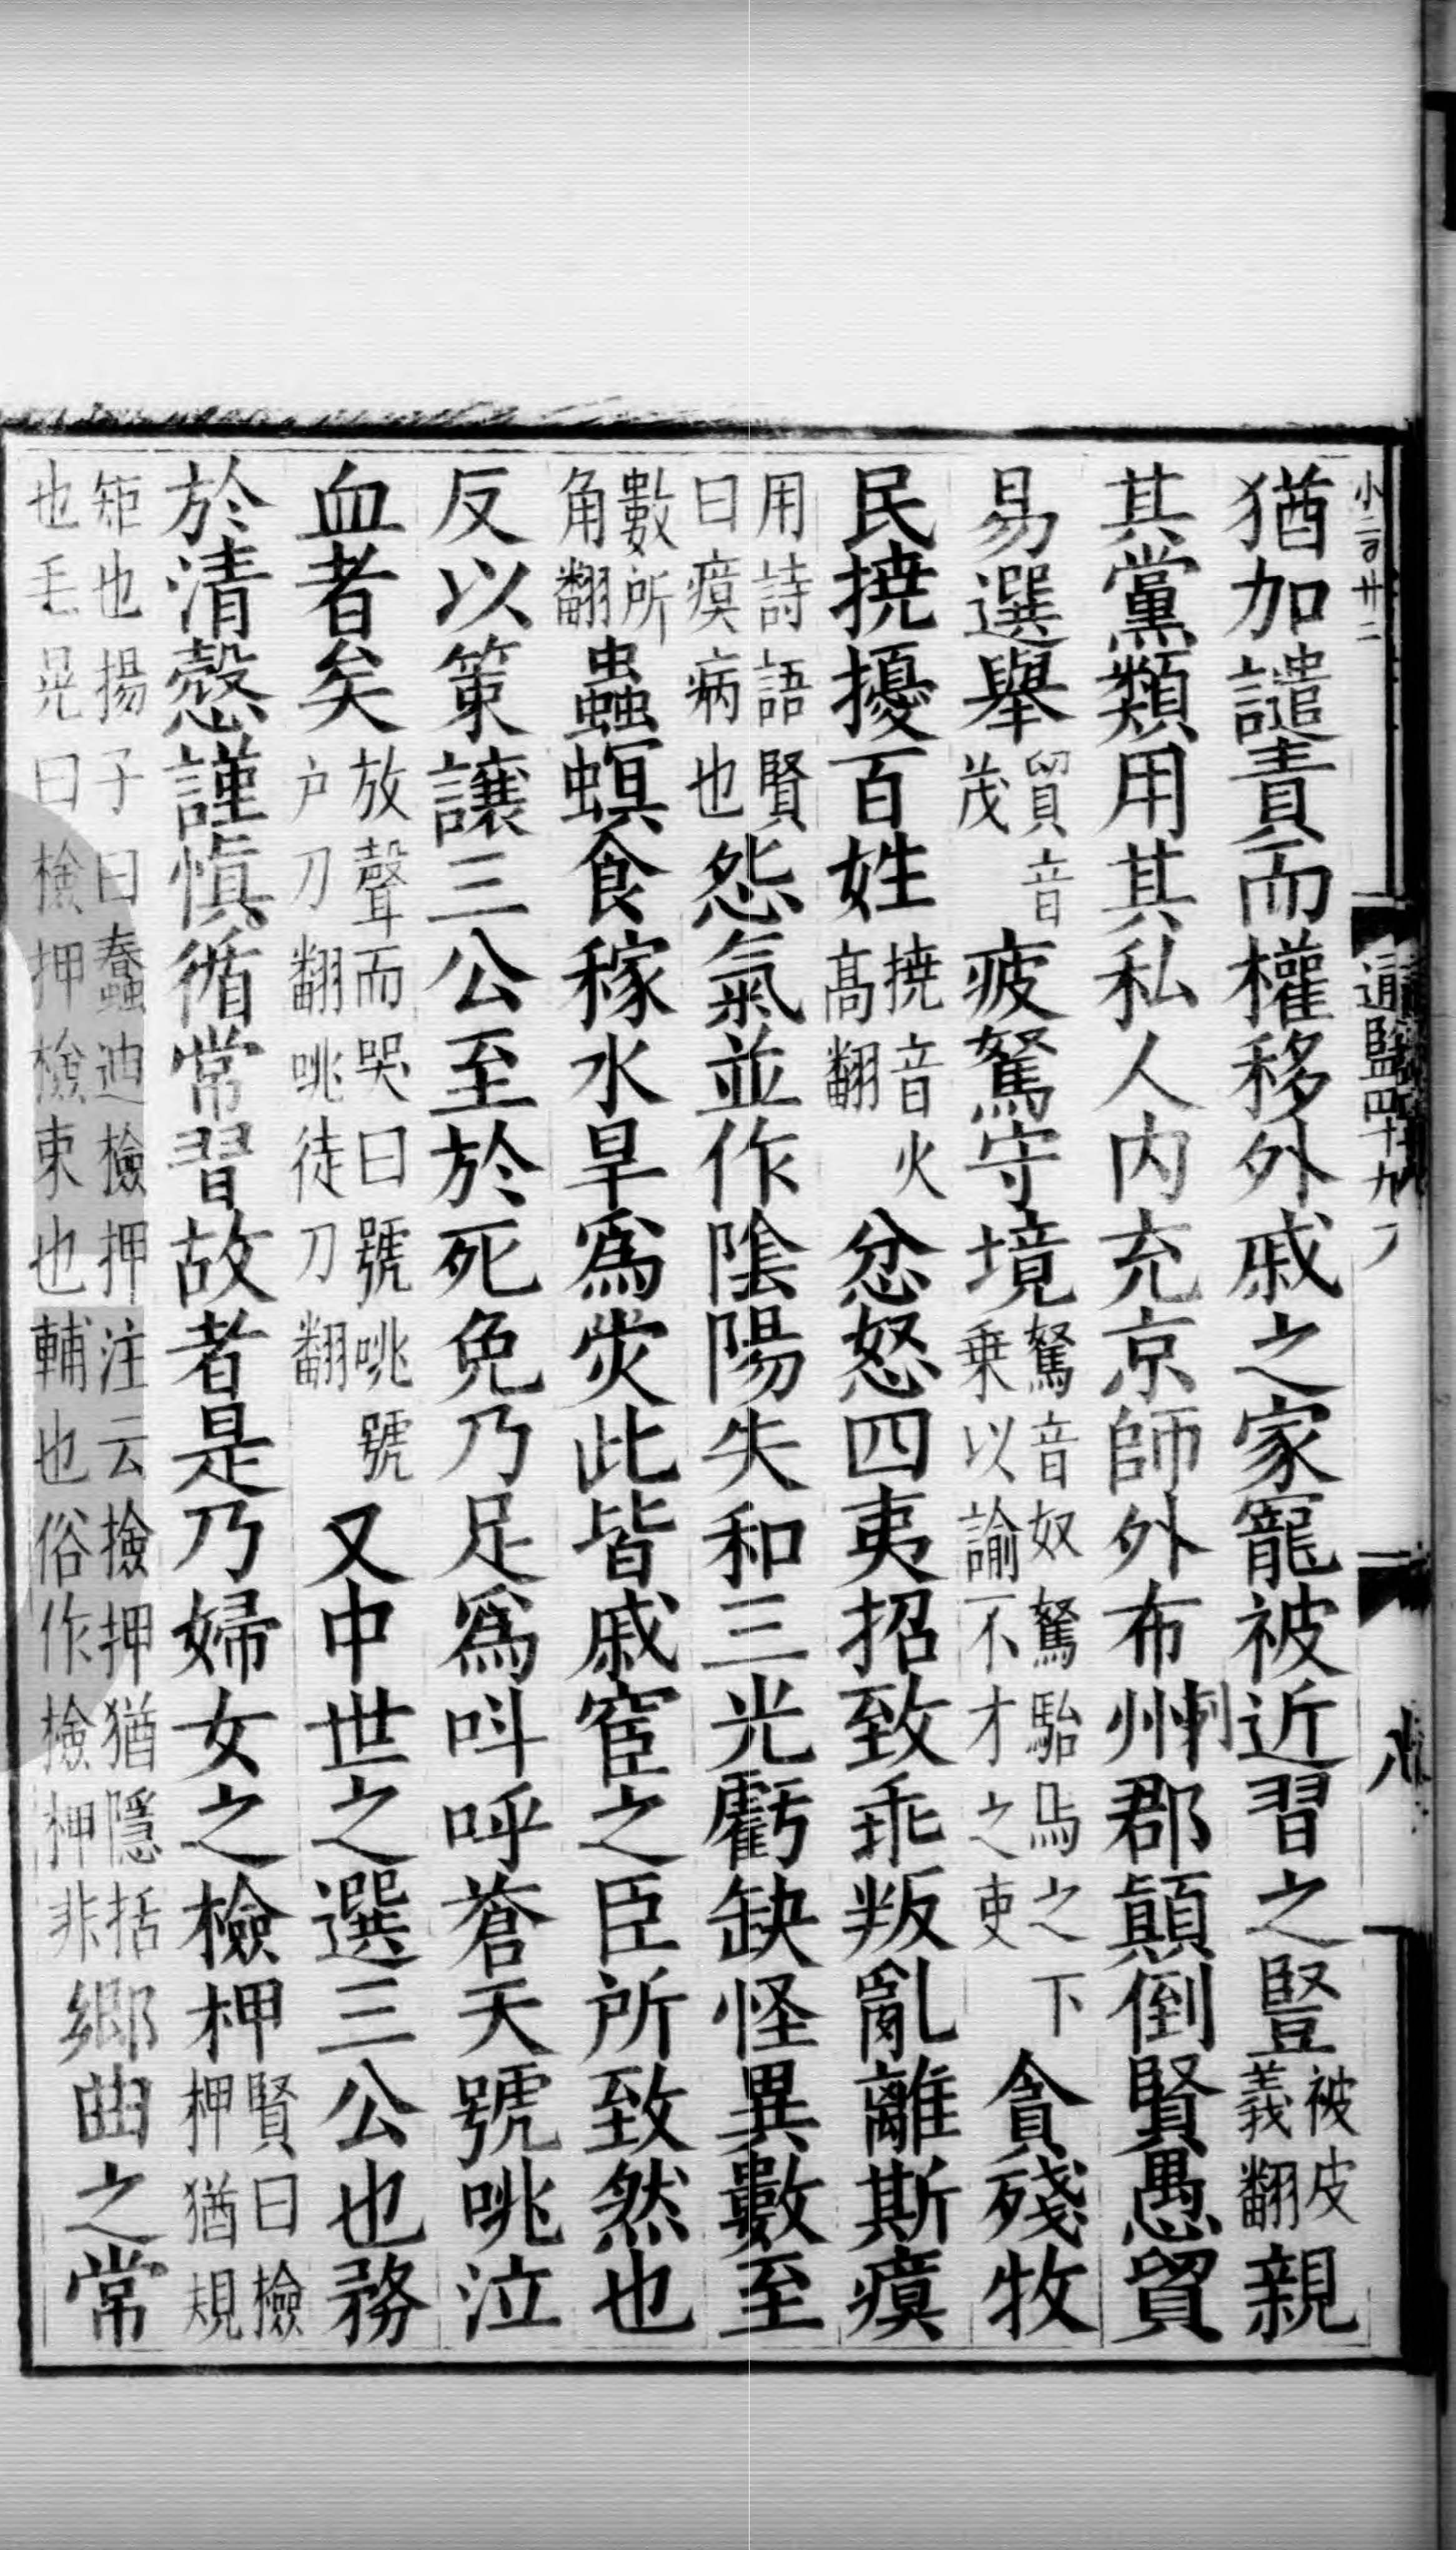 猶加譴責而權移外戚之家寵被近習之豎被皮義翻親
其黨類用其私人内充京師外布州剌郡顛倒賢愚貿
易選舉貿音茂疲駑守境駑音奴駑駘馬之下乗以諭不才之吏貪殘牧
民撓擾百姓撓音火高翻忿怒四夷招致乖叛亂離斯瘼
用詩語賢曰瘼病也怨氣並作陰陽失和三光虧缺怪異數至
數所角翻蟲螟食稼水旱爲災此皆戚宦之臣所致然也
反以策讓三公至於死免乃足爲呌呼蒼天號咷泣
血者矣放聲而哭曰號咷號户刀翻咷徒刀翻又中世之選三公也務
於清慤謹慎循常習故者是乃婦女之檢柙賢曰檢柙猶規
矩也揚子曰蠢迪檢押注云撿押猶隱括也毛晃曰撿押檢束也輔也俗作撿柙非鄉曲之常
通監四十九
八